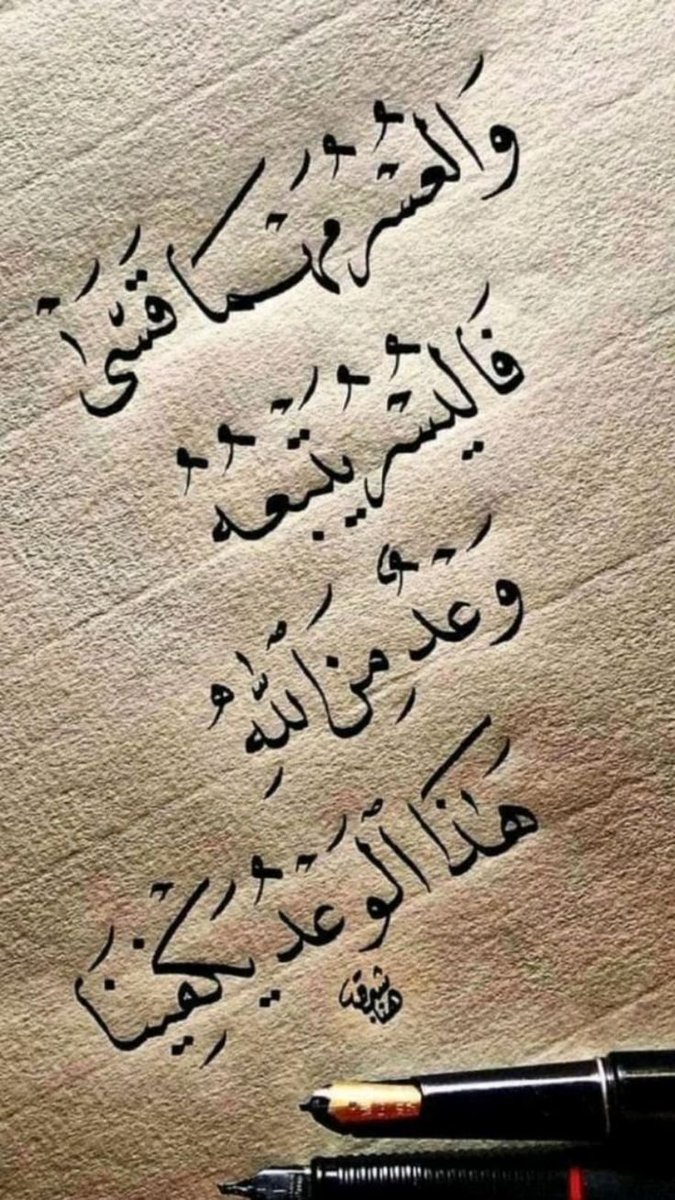 وَالْعُسْرُ مَهْمَا قَسَىٰ
فَالْيُسْرُ يَتْبَعُهُ
وَعْدٌ مِنَ ٱللَّهِ
هَٰذَا ٱلْوَعْدُ يَكْفِينَا